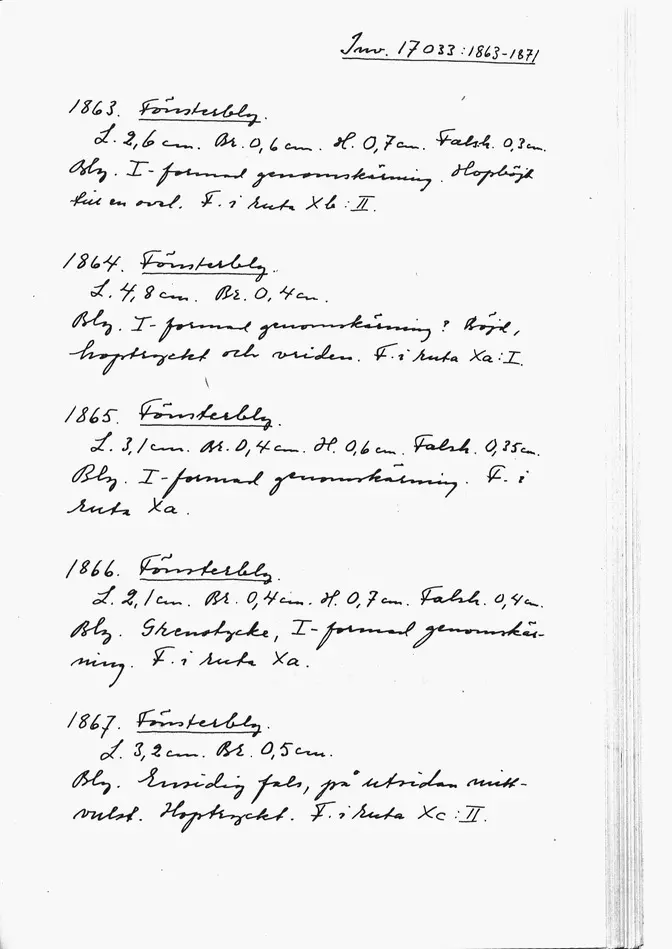 Inv. 17033:1863-1871
1863. Fönsterbly.
L. 2,6 cm. Br. 0,6 cm. H. 0,7 cm. Falsh. 0,3 cm.
Bly. I-formad genomskärning. Hopböjt
till en oval. F. i ruta Xb:II.
1864. Fönsterbly.
L. 4,8 cm. Br. 0,4 cm.
Bly. I-formad genomskärning? Böjd,
hoptryckt och vriden. F. i ruta Xa:I.
1865. Fönsterbly.
L. 3,1 cm. Br. 0,4 cm. H. 0,6 cm. Falsh. 0,35 cm.
Bly. I-formad genomskärning. F. i
ruta Xa.
1866. Fönsterbly.
L. 2,1 cm. Br. 0,4 cm. H. 0,7 cm. Falsh. 0,4 cm.
Bly. Grenstycke, I-formad genomskär-
ning. F. i ruta Xa.
1867. Fönsterbly.
L. 3,2 cm. Br. 0,5 cm.
Bly. Ensidig fals, på utsidan mitt-
vulst. Hoptryckt. F. i ruta Xc:II.